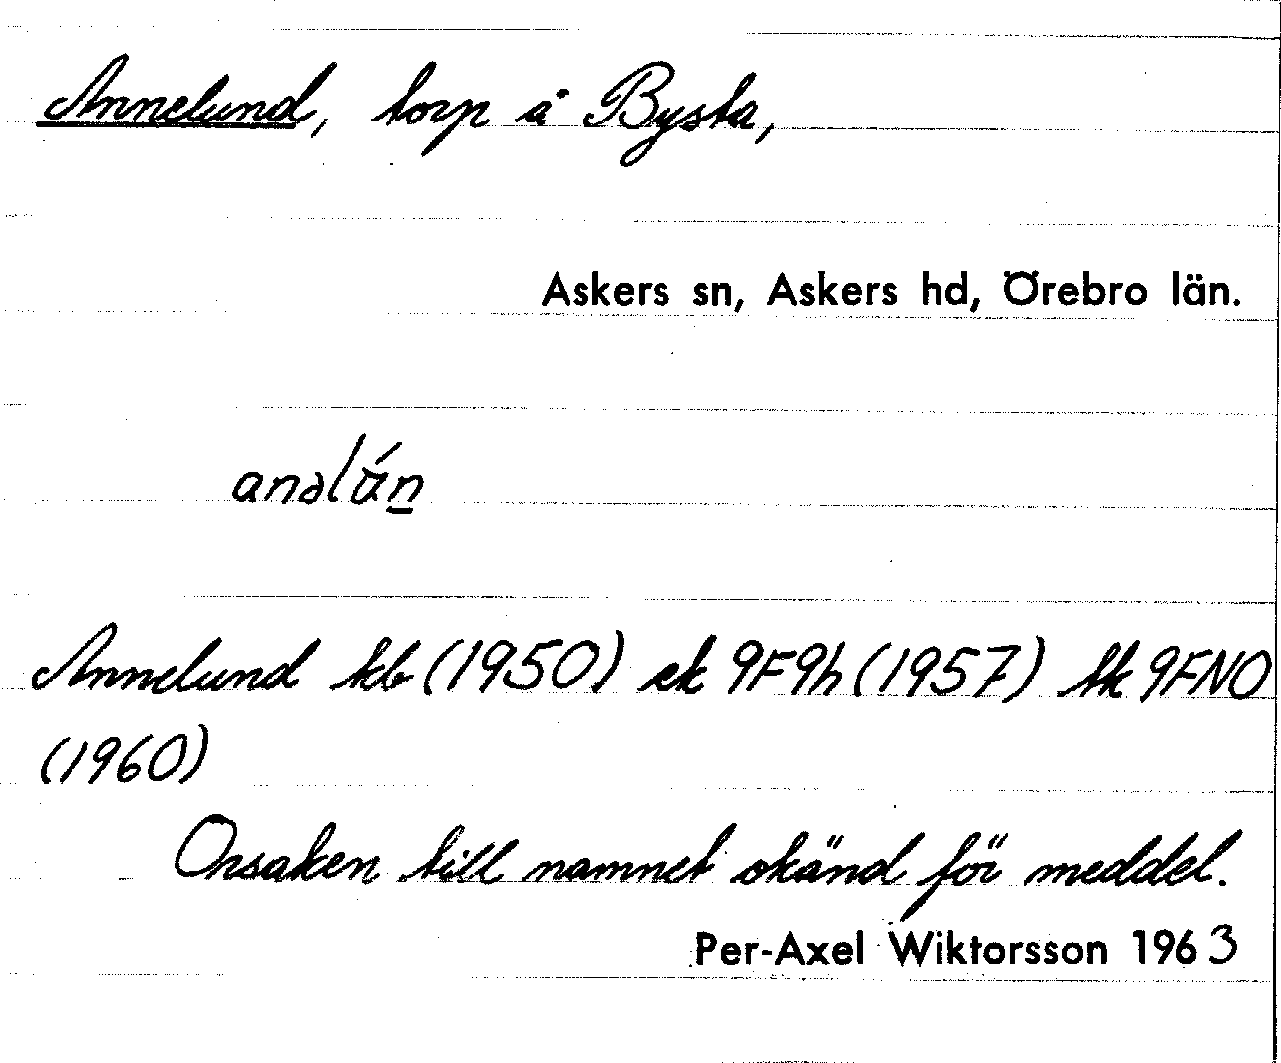 Annelund, torp å Bysta,
Askers sn, Askers hd, Örebro län.
Annelund kb (1950) ek 9F9h (1957) tk 9FNO
(1960)
Orsaken till namnet okänd för meddel.
Per-Axel Wiktorsson 1963